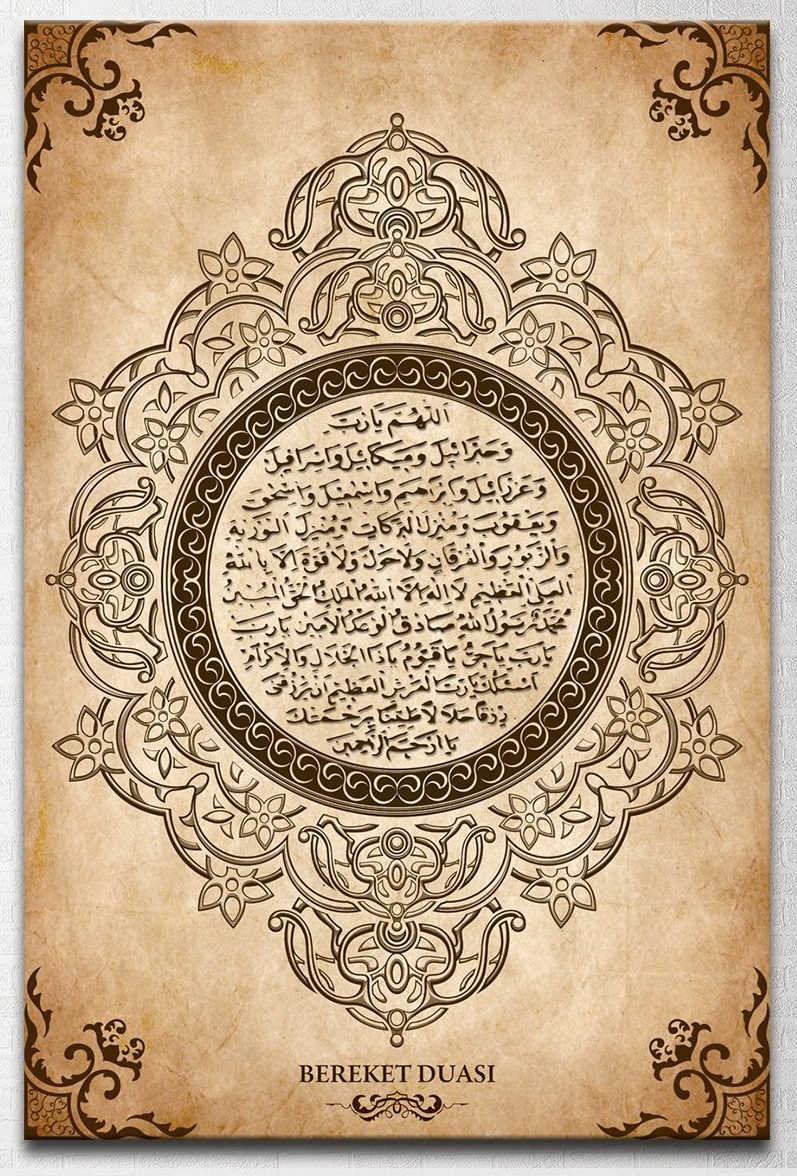 اللهم يارب
وجبرائيل وميكائيل واسرافيل
وعزرائيل وابراهيم واسمعيل واسحق
ويعقوب ومنزل البركات ومنزل التورية
والزبور والفرقان ولاحول ولا قوة الا بالله
العلي العظيم لا اله الا الله الملك الحق المبين
محمد رسول الله صادق الوعد الامين يارب
يارب ياحي ياقيوم ياذا الجلال والاكرام
اسئلك يارب العرش العظيم ان يرزقني
رزقا حلالا طيبا برحمتك
يا ارحم الراحمين
BEREKET DUASI